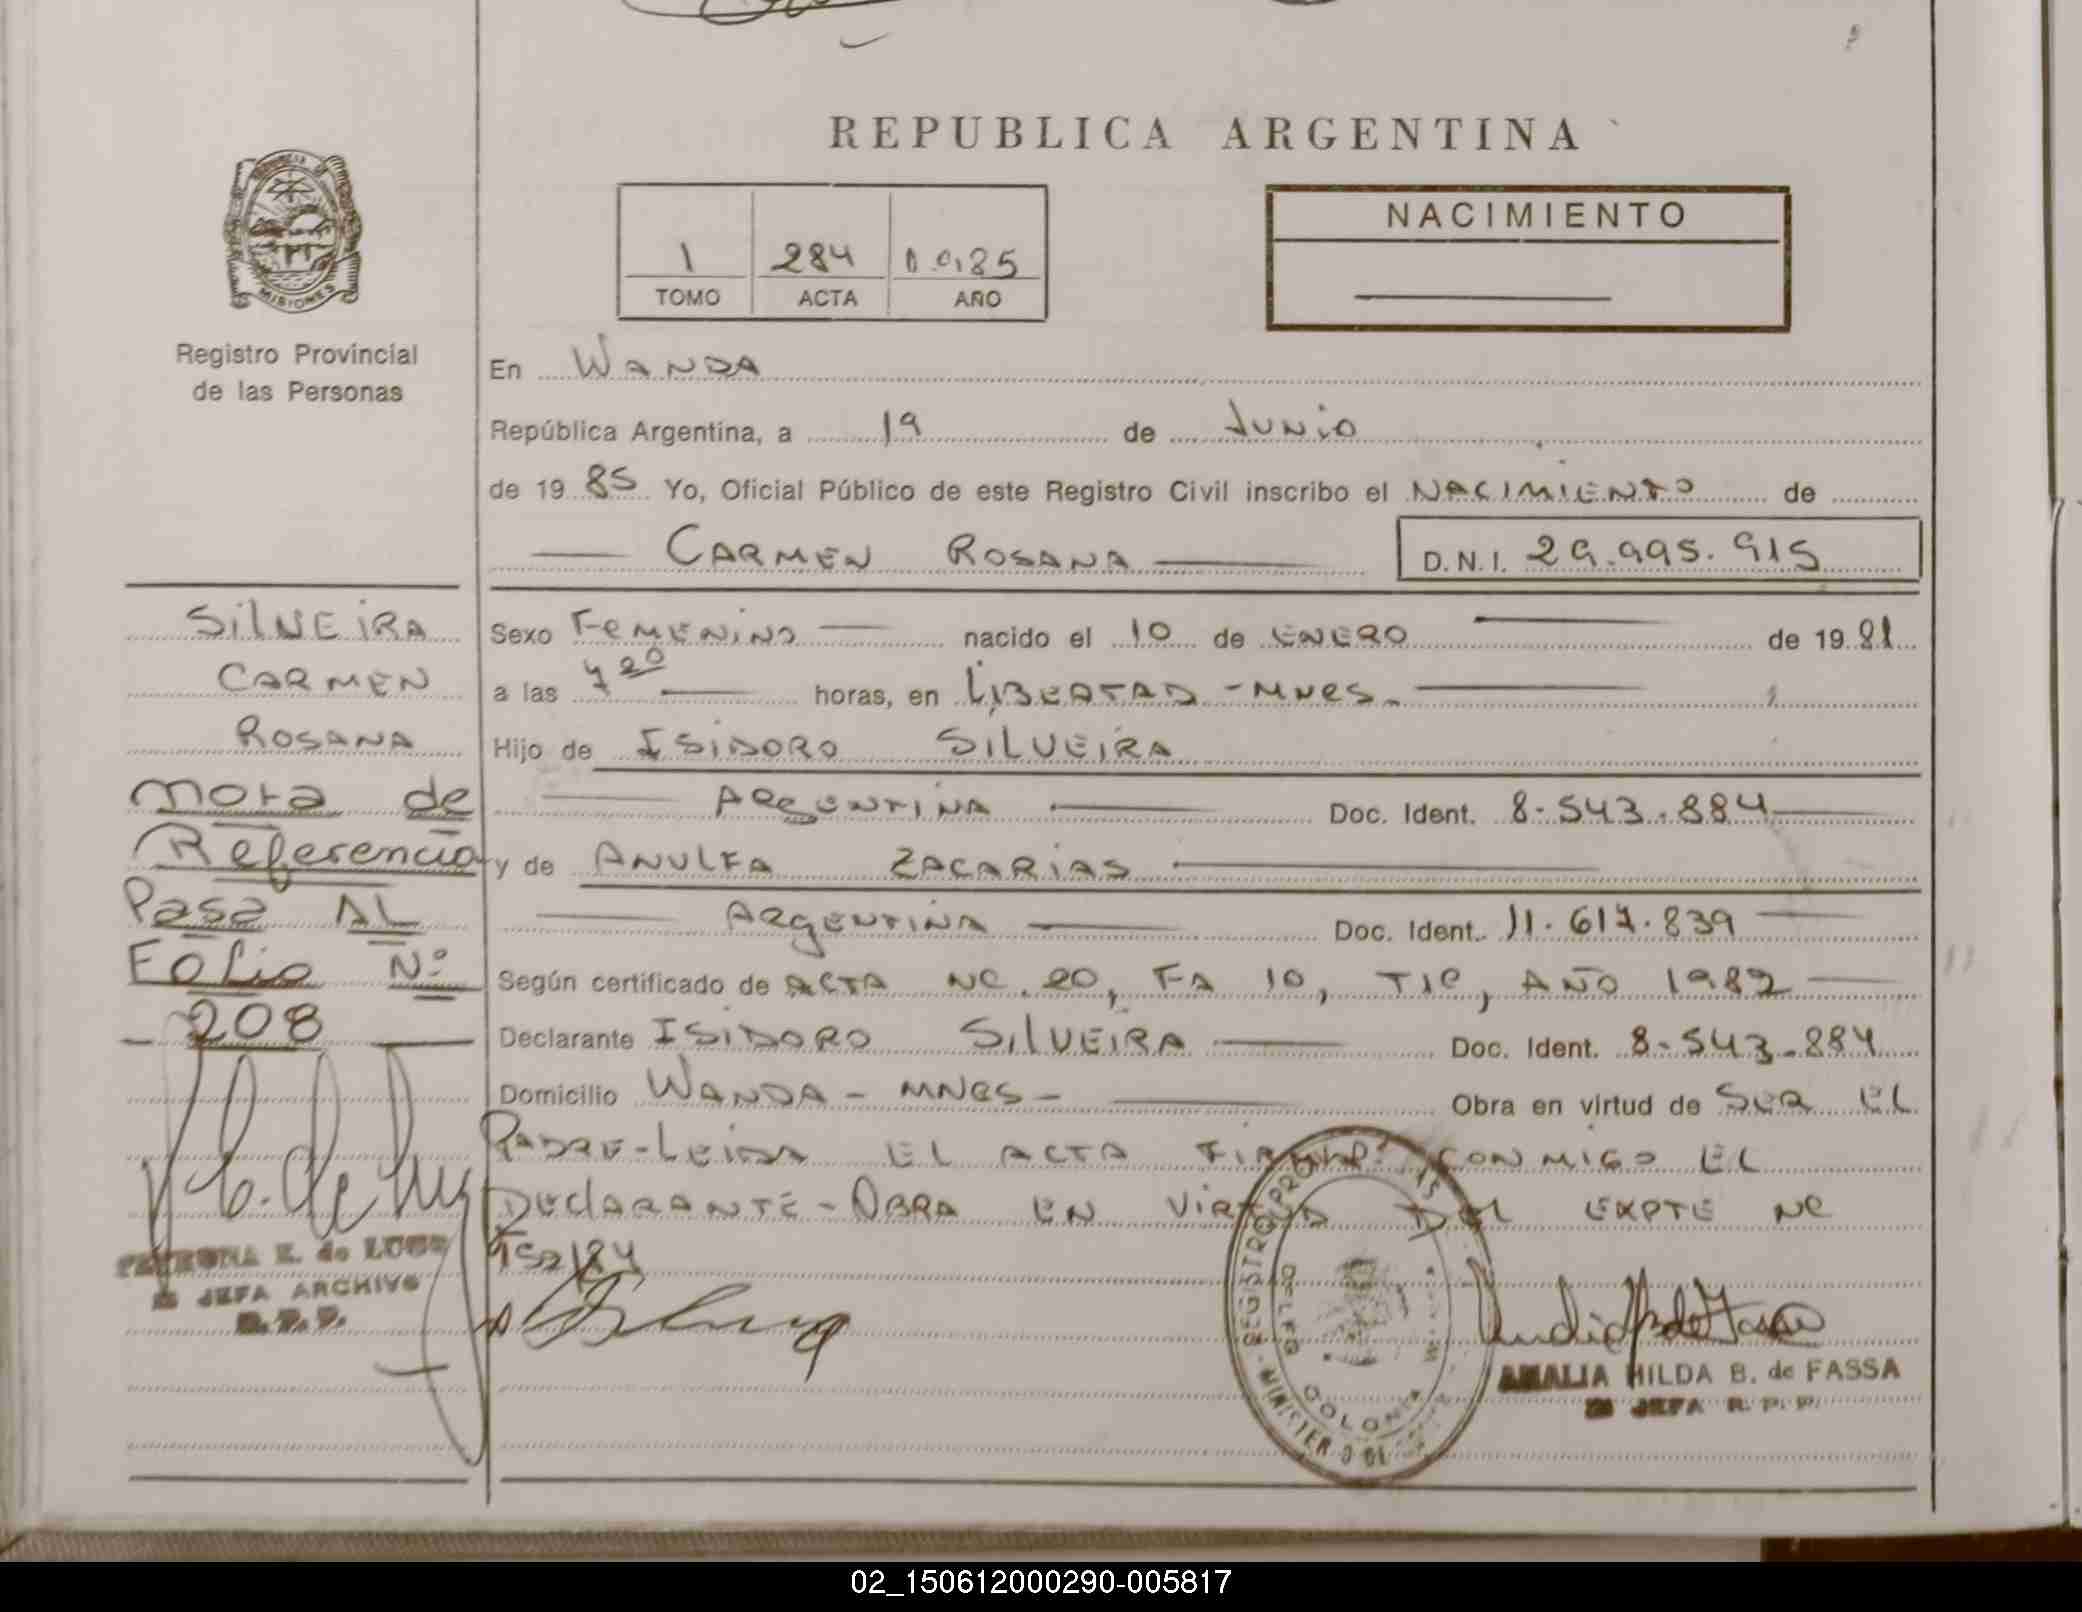 REPUBLICA ARGENTINA
MISIONES
Registro Provincial
de las Personas
1 284
TOMO ACTA AÑO
NACIMIENTO
En WANDA
República Argentina, a 19 de Junio
de 19 85 Yo, Oficial Público de este Registro Civil inscribo el NACIMIENTO de
CARMEN ROSANA D.N.I. 29.995.915
SILVEIRA
CARMEN
ROSANA
Nota de
Referencia
Pasa AL
Folio Nº
208
PETRONA E. de LUGO
JEFA ARCHIVO
R.P.P.
Sexo FEMENINO nacido el 10 de ENERO de 19 81
a las 7 20 horas, en LIBERTAD - MNES.
Hijo de ISIDORO SILVEIRA
ARGENTINA Doc. Ident. 8.543.884
y de ANULFA ZACARIAS
ARGENTINA Doc. Ident. 11.617.839
Según certificado de ACTA Nº 20, Fº 10, TIº, AÑO 1982
Declarante ISIDORO SILVEIRA Doc. Ident. 8.543.884
Domicilio WANDA - MNES - Obra en virtud de SER EL
PADRE - LEIDA EL ACTA FIRMAN CONMIGO EL
DECLARANTE - OBRA EN VIRTUD DEL EXPTE Nº
/84
REGISTRO PROV
DELEG
COLONIA
MINISTERIO DE
AMALIA HILDA B. de FASSA
JEFA R. P. P.
02_150612000290-005817